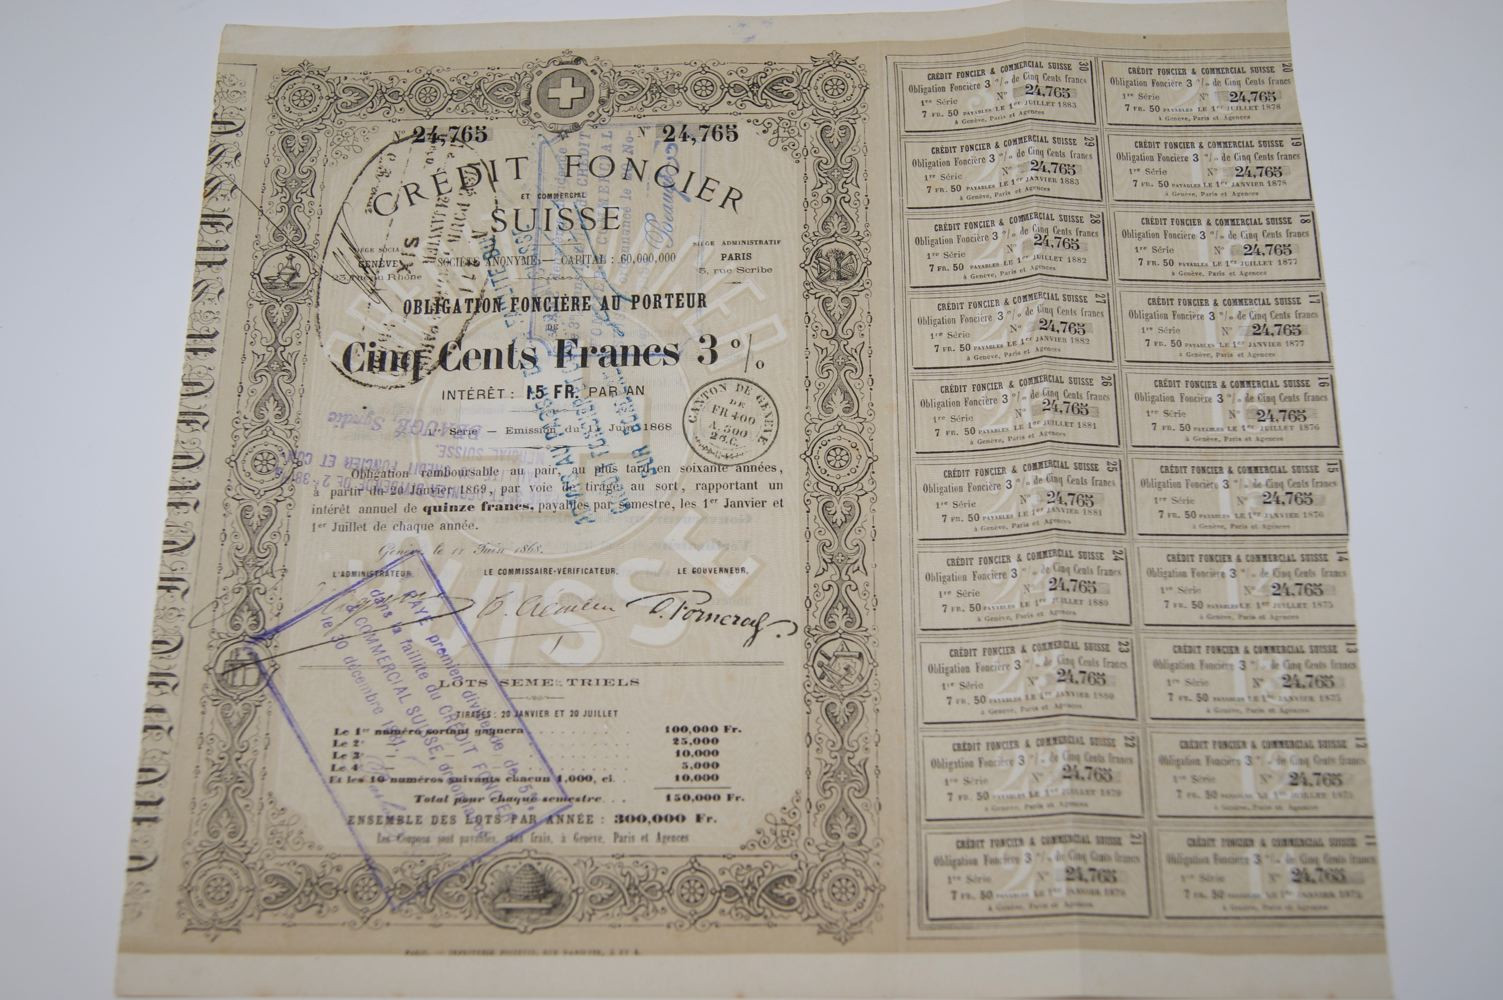 N° 24,765 N° 24,765
CRÉDIT FONCIER
ET COMMERCIAL
SUISSE
SIÈGE SOCIAL
GENÈVE
Rue du Rhône
SOCIÉTÉ ANONYME. — CAPITAL : 60,000,000
SIÈGE ADMINISTRATIF
PARIS
5, rue Scribe
OBLIGATION FONCIÈRE AU PORTEUR
DE
Cinq Cents Francs 3 %
INTÉRÊT : 15 FR. PAR AN
1re Série — Emission du 11 Juin 1868
CANTON DE GENÈVE
DE
FR 400
A 500
Obligation remboursable au pair, au plus tard en soixante années,
à partir du 20 Janvier 1869, par voie de tirage au sort, rapportant un
intérêt annuel de quinze francs, payables par semestre, les 1er Janvier et
1er Juillet de chaque année.
Genève le 11 Juin 1868.
L'ADMINISTRATEUR LE COMMISSAIRE-VÉRIFICATEUR. LE GOUVERNEUR.
LOTS SEMESTRIELS
TIRAGES : 20 JANVIER ET 20 JUILLET
Le 1er numéro sortant gagnera 100,000 Fr.
Le 2e 25,000
Le 3e 10,000
Le 4e 5,000
Et les 10 numéros suivants chacun 1,000, ci. 10,000
Total pour chaque semestre 150,000 Fr.
ENSEMBLE DES LOTS PAR ANNÉE : 300,000 Fr.
Les Coupons sont payables, sans frais, à Genève, Paris et Agences
PAYÉ premier dividende de 5
dans la faillite du CRÉDIT FONCIER
& COMMERCIAL SUISSE,
le 30 décembre 1881
BEAUGÉ, Syndic
30
CRÉDIT FONCIER & COMMERCIAL SUISSE
Obligation Foncière 3 % de Cinq Cents francs
1re Série N° 24,765
7 FR. 50 PAYABLES LE 1er JUILLET 1883
à Genève, Paris et Agences
20
CRÉDIT FONCIER & COMMERCIAL SUISSE
Obligation Foncière 3 % de Cinq Cents francs
1re Série N° 24,765
7 FR. 50 PAYABLES LE 1er JUILLET 1878
à Genève, Paris et Agences
29
CRÉDIT FONCIER & COMMERCIAL SUISSE
Obligation Foncière 3 % de Cinq Cents francs
1re Série N° 24,765
7 FR. 50 PAYABLES LE 1er JANVIER 1883
à Genève, Paris et Agences
19
CRÉDIT FONCIER & COMMERCIAL SUISSE
Obligation Foncière 3 % de Cinq Cents francs
1re Série N° 24,765
7 FR. 50 PAYABLES LE 1er JANVIER 1878
à Genève, Paris et Agences
28
CRÉDIT FONCIER & COMMERCIAL SUISSE
Obligation Foncière 3 % de Cinq Cents francs
1re Série N° 24,765
7 FR. 50 PAYABLES LE 1er JUILLET 1882
à Genève, Paris et Agences
18
CRÉDIT FONCIER & COMMERCIAL SUISSE
Obligation Foncière 3 % de Cinq Cents francs
1re Série N° 24,765
7 FR. 50 PAYABLES LE 1er JUILLET 1877
à Genève, Paris et Agences
27
CRÉDIT FONCIER & COMMERCIAL SUISSE
Obligation Foncière 3 % de Cinq Cents francs
1re Série N° 24,765
7 FR. 50 PAYABLES LE 1er JANVIER 1882
à Genève, Paris et Agences
17
CRÉDIT FONCIER & COMMERCIAL SUISSE
Obligation Foncière 3 % de Cinq Cents francs
1re Série N° 24,765
7 FR. 50 PAYABLES LE 1er JANVIER 1877
à Genève, Paris et Agences
26
CRÉDIT FONCIER & COMMERCIAL SUISSE
Obligation Foncière 3 % de Cinq Cents francs
1re Série N° 24,765
7 FR. 50 PAYABLES LE 1er JUILLET 1881
à Genève, Paris et Agences
16
CRÉDIT FONCIER & COMMERCIAL SUISSE
Obligation Foncière 3 % de Cinq Cents francs
1re Série N° 24,765
7 FR. 50 PAYABLES LE 1er JUILLET 1876
à Genève, Paris et Agences
25
CRÉDIT FONCIER & COMMERCIAL SUISSE
Obligation Foncière 3 % de Cinq Cents francs
1re Série N° 24,765
7 FR. 50 PAYABLES LE 1er JANVIER 1881
à Genève, Paris et Agences
15
CRÉDIT FONCIER & COMMERCIAL SUISSE
Obligation Foncière 3 % de Cinq Cents francs
1re Série N° 24,765
7 FR. 50 PAYABLES LE 1er JANVIER 1876
à Genève, Paris et Agences
24
CRÉDIT FONCIER & COMMERCIAL SUISSE
Obligation Foncière 3 % de Cinq Cents francs
1re Série N° 24,765
7 FR. 50 PAYABLES LE 1er JUILLET 1880
à Genève, Paris et Agences
14
CRÉDIT FONCIER & COMMERCIAL SUISSE
Obligation Foncière 3 % de Cinq Cents francs
1re Série N° 24,765
7 FR. 50 PAYABLES LE 1er JUILLET 1875
à Genève, Paris et Agences
23
CRÉDIT FONCIER & COMMERCIAL SUISSE
Obligation Foncière 3 % de Cinq Cents francs
1re Série N° 24,765
7 FR. 50 PAYABLES LE 1er JANVIER 1880
à Genève, Paris et Agences
13
CRÉDIT FONCIER & COMMERCIAL SUISSE
Obligation Foncière 3 % de Cinq Cents francs
1re Série N° 24,765
7 FR. 50 PAYABLES LE 1er JANVIER 1875
à Genève, Paris et Agences
22
CRÉDIT FONCIER & COMMERCIAL SUISSE
Obligation Foncière 3 % de Cinq Cents francs
1re Série N° 24,765
7 FR. 50 PAYABLES LE 1er JUILLET 1879
à Genève, Paris et Agences
12
CRÉDIT FONCIER & COMMERCIAL SUISSE
Obligation Foncière 3 % de Cinq Cents francs
1re Série N° 24,765
7 FR. 50 PAYABLES LE 1er JUILLET
à Genève, Paris et Agences
21
CRÉDIT FONCIER & COMMERCIAL SUISSE
Obligation Foncière 3 % de Cinq Cents francs
1re Série N° 24,765
7 FR. 50 PAYABLES LE 1er JANVIER 1879
à Genève, Paris et Agences
11
CRÉDIT FONCIER & COMMERCIAL SUISSE
Obligation Foncière 3 % de Cinq Cents francs
1re Série N° 24,765
7 FR. 50 PAYABLES LE 1er JANVIER
à Genève, Paris et Agences